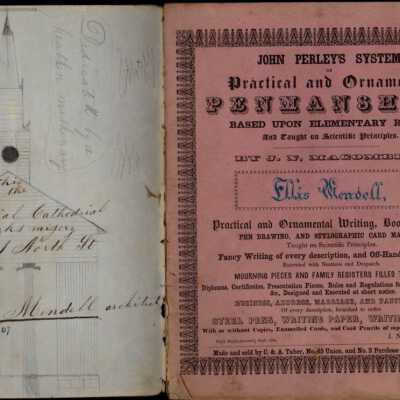 Dedicated by a
heathen missionary
the
Cathederal
North St
Mendell architect
JOHN PERLEY'S SYSTEM
OF
Practical and Orname
PENMANSH
BASED UPON ELEMENTARY
And Taught on Scientific Principles.
BY J. N. MACOMBE
Ellis Mendell,
Practical and Ornamental Writing, Boo
PEN DRAWING, AND STYLOGRAPHIC CARD MA
Taught on Scientific Principles.
Fancy Writing of every description, and Off-Hand
Executed with Neatness and Despatch.
MOURNING PIECES AND FAMILY REGISTERS FILLED
Diplomas, Certificates, Presentation Pieces, Rules and Regulations
&c., Designed and Executed at short notice.
BUSINESS, ADDRESS, MARRIAGE, AND
Of every description, furnished to order.
STEEL PENS, WRITING PAPER, WRITIN
With or without Copies, Enamelled Cards, and Card Pencils of
J. N.
Made and sold by C. & A. Taber, No. 45 Union, and No. 2 Purchase